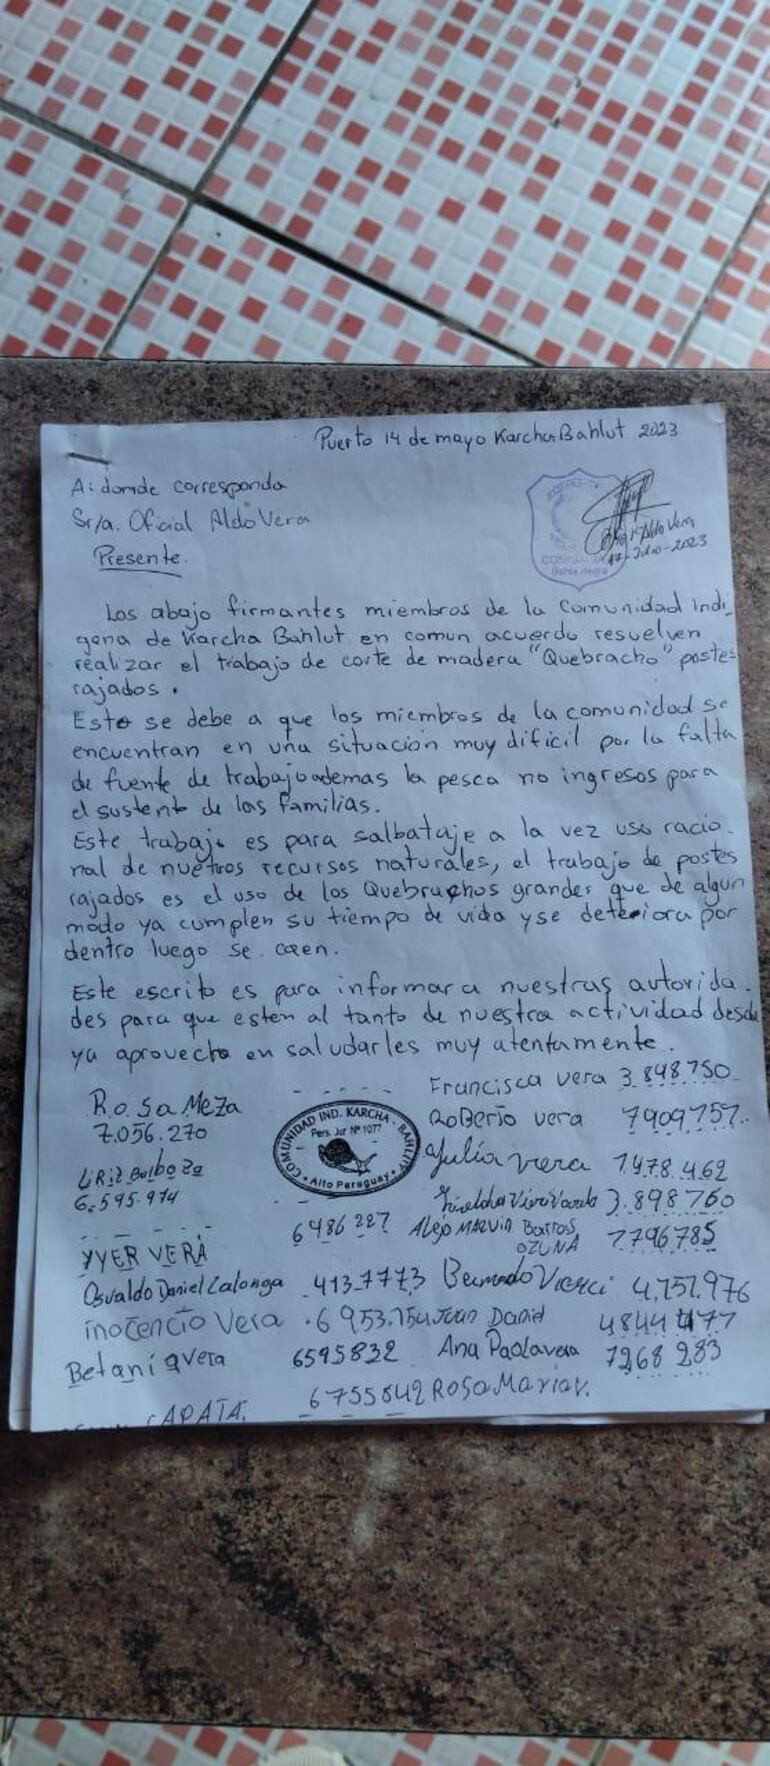 Puerto 14 de mayo Karcha Bahlut 2023
A: donde corresponda
Sr/a. Oficial Aldo Vera
Presente.
Aldo Vera
17-Julio-2023
Bahía Negra
Los abajo firmantes miembros de la comunidad indi
gena de Karcha Bahlut en comun acuerdo resuelven
realizar el trabajo de corte de madera "Quebracho" postes
rajados.
Esto se debe a que los miembros de la comunidad se
encuentran en una situacion muy dificil por la falta
de fuente de trabajo ademas la pesca no ingresos para
el sustento de las familias.
Este trabajo es para salbataje a la vez uso racio-
nal de nuetros recursos naturales, el trabajo de postes
rajados es el uso de los Quebrachos grandes que de algun
modo ya cumplen su tiempo de vida y se deteriora por
dentro luego se caen.
Este escrito es para informar a nuestras autorida-
des para que esten al tanto de nuestra actividad desde
ya aprovecho en saludarles muy atentamente.
Francisca vera 3.898.750
Rosa Meza
7.056.270
COMUNIDAD IND. KARCHA - BAHLUT
Pers. Jur Nº 1077
Alto Paraguay
RoBerto vera 7909757
Julia vera 7478.462
6.595.974
3.898760
YVER VERA 6486227 Alejo MARVIN Barros
OZUNA 7796785
Osvaldo Daniel Calonga 4137773 Bernardo Vierci 4,757.976
inocencio Vera 6953.754 Juan Daniel 4844477
Betania vera 6595832 Ana Paola vera 7268283
6755842 Rosa Maria v.